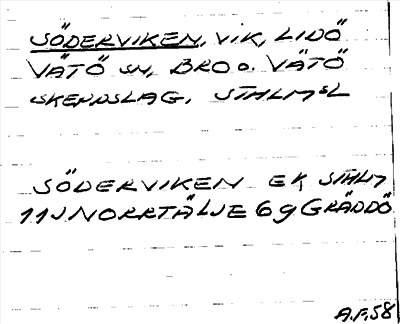 SÖDERVIKEN, VIK, LIDÖ
VÄTÖ SN, BRO O. VÄTÖ
SKEPPSLAG, STHLMSL
SÖDERVIKEN EK, STHLM
11J NORRTÄLJE 6g GRÄDDÖ
A.P.58